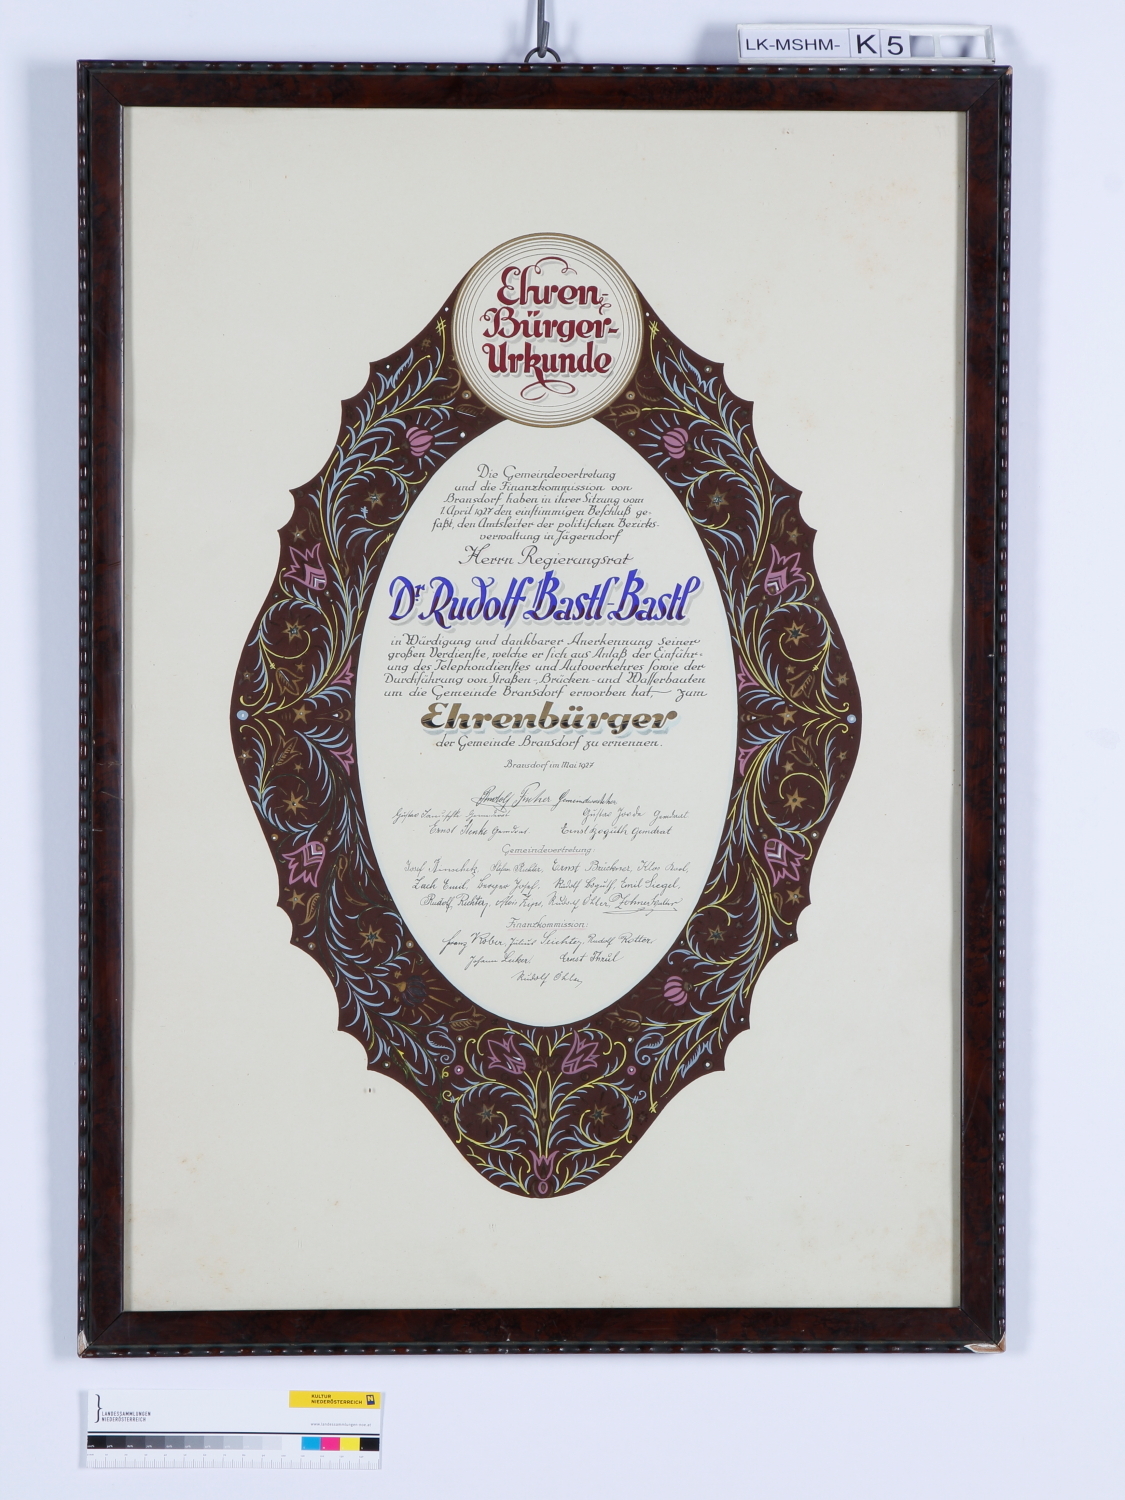 LK-MSHM- K 5
Ehren-
Bürger-
Urkunde
Die Gemeindevertretung
und die Finanzkommission von
Bransdorf haben in ihrer Sitzung vom
1. April 1927 den einstimmigen Beschluß ge-
faßt, den Amtsleiter der politischen Bezirks-
verwaltung in Jägerndorf
Herrn Regierungsrat
Dr. Rudolf Bastl-Bastl
in Würdigung und dankbarer Anerkennung seiner
großen Verdienste, welche er sich aus Anlaß der Einführ-
ung des Telephondienstes und Autoverkehres sowie der
Durchführung von Straßen-, Brücken- und Wasserbauten
um die Gemeinde Bransdorf erworben hat, zum
Ehrenbürger
der Gemeinde Bransdorf zu ernennen.
Bransdorf im Mai 1927
Rudolf Gemeindevorsteher
Gustav Gustav Gemdrat
Ernst Gemdrat Ernst Gemdrat
Gemeindevertretung:
Josef Stefan Richter, Ernst Brückner,
Zach Emil, Josef. Rudolf Emil Siegel,
Rudolf Richter, Alois Rudolf
Finanzkommission:
Franz Kober, Julius Rudolf Rotter
Johann Ernst
Rudolf
LANDESSAMMLUNGEN
NIEDERÖSTERREICH
KULTUR
NIEDERÖSTERREICH